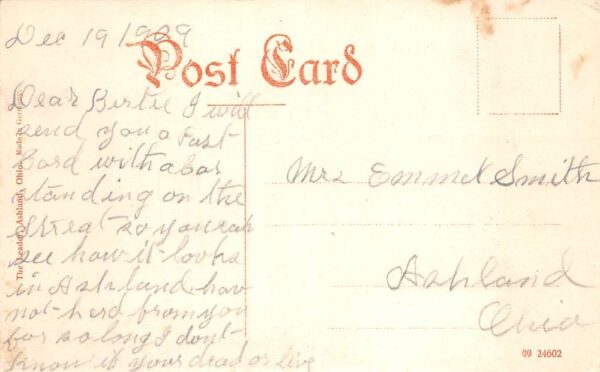 Dec 19 1909
Post Card
Dear Birtie I will
send you a Post
Card with a
standing on the
Street so you can
see how it looks
in Ashland hav
not herd from you
for so long I dont
know if your dead or live
The Ashland, Ohio. Made in Germany
Mrs Emmet Smith
Ashland
Ohio
09 24602